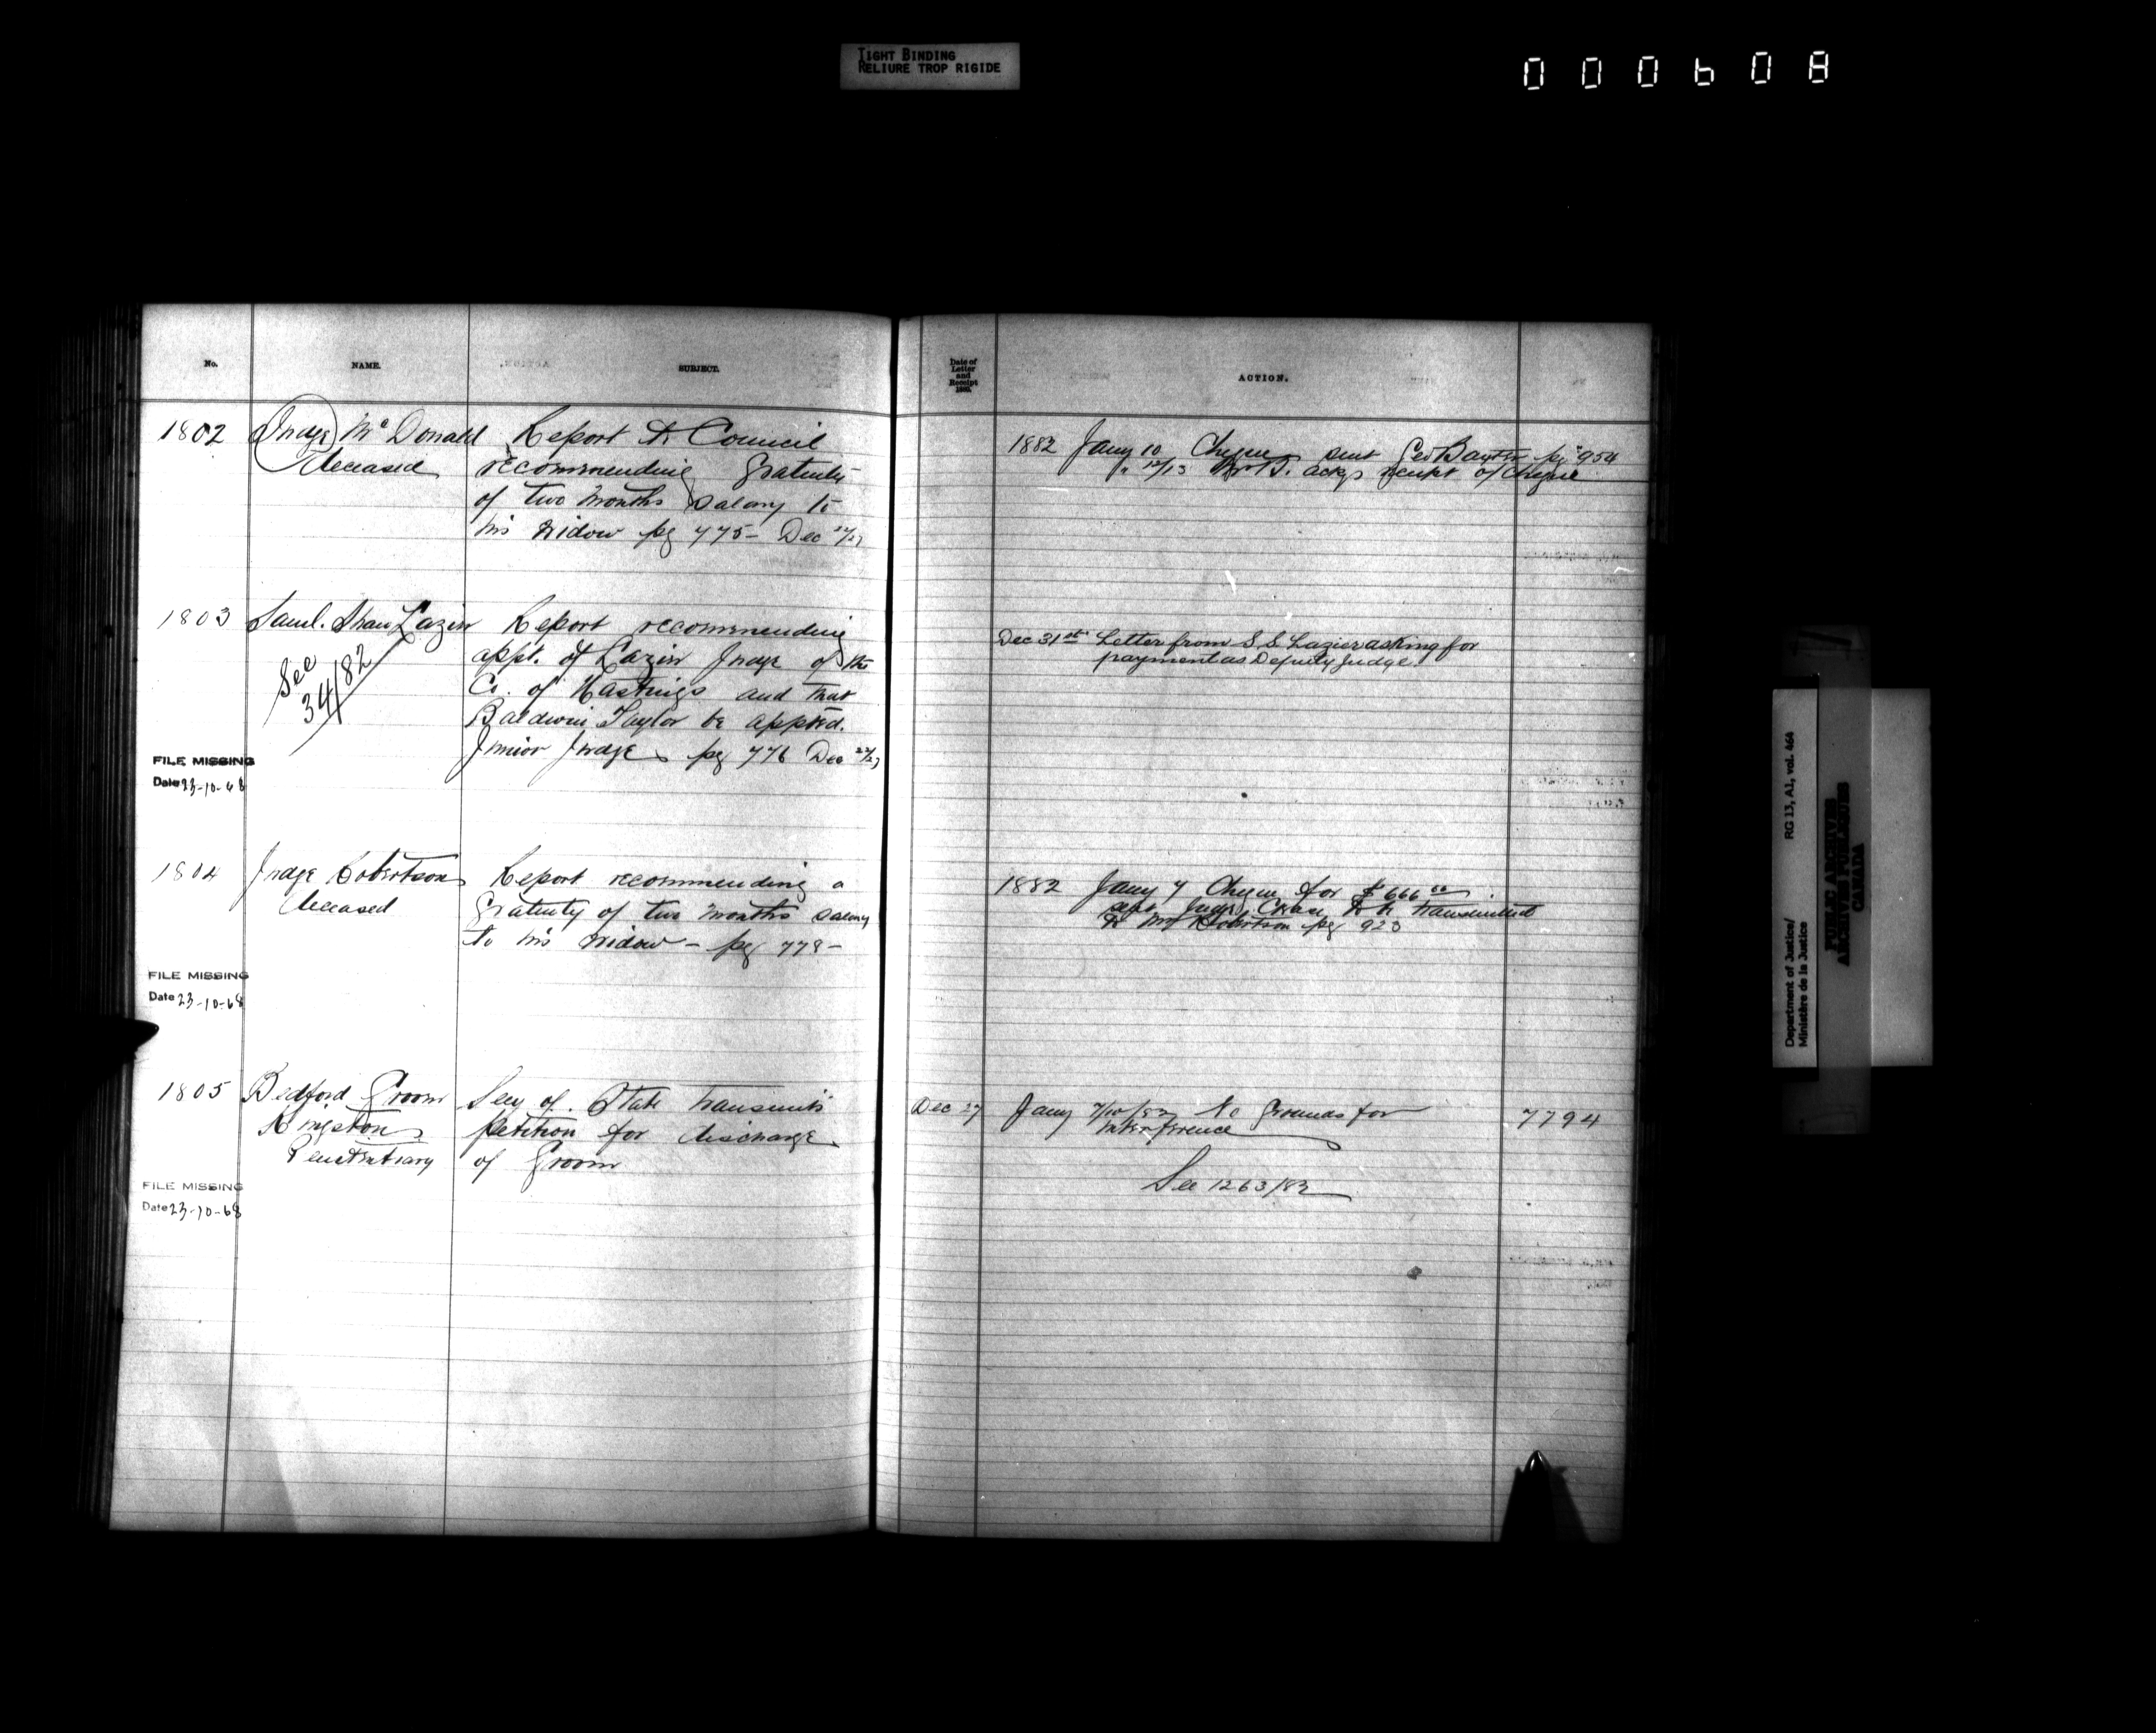 TIGHT BINDING
RELIURE TROP RIGIDE
000608
No.
NAME.
SUBJECT.
1802
Judge McDonald
Deceased
Report to Council
recommending gratuity
of two months salary to
his widow pg 775 - Dec 22/27
1803
Saml. Shaw Lazier
See
34/82
Report recommending
appt. of Lazier Judge of the
Co. of Hastings and that
Baldwin Taylor be appted.
Junior Judge pg 776 Dec 22/27
FILE MISSING
Date 23-10-68
1804
Judge Robertson
Deceased
Report recommending a
Gratuity of two months salary
to his widow - pg 778 -
FILE MISSING
Date 23-10-68
1805
Bedford Groom
Kingston
Penitentiary
Secy of State transmits
petition for discharge
of Groom
FILE MISSING
Date 23-10-68
Date of
Letter
and
Receipt
ACTION.
1882 Jany 10 Cheque sent Geo Baxter pg 954
" 12/13 Mr B. ackgs receipt of cheque
Dec 31st Letter from S S Lazier asking for
payment as Deputy Judge
1882 Jany 7 Cheque for $666
sent Judge to be transmitted
to Mrs Robertson pg 923
Dec 27
Jany 7/10/82 No Grounds for
interference
7794
See 1263/83
Department of Justice/
Ministère de la Justice
RG 13, A1, vol. 464
PUBLIC ARCHIVES
ARCHIVES PUBLIQUES
CANADA